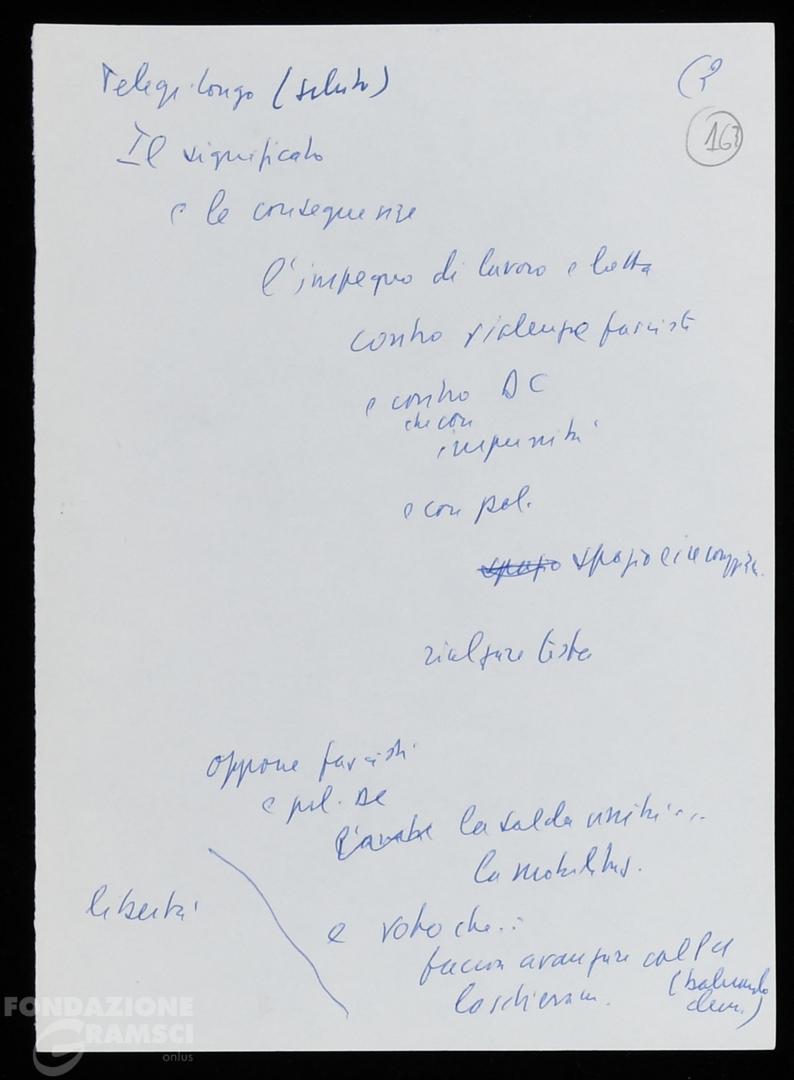 Telegr. Longo (saluto)
163
Il significato
e le conseguenze
l'impegno di lavoro e lotta
contro violenze fasciste
e contro DC
che con
impunità
e con pol.
spazio spazio e
rialzare testa
oppone fascisti
e pol. DC
la salda unità...
la mobilitaz.
libertà
e voto che...
faccia avanzare col PCI
lo schieram. (baluardo
dem.)
FONDAZIONE
GRAMSCI
onlus